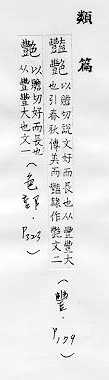 類篇
豔豓以贍切說文好而長也从豐豐大
也引春秋傳美而豔隸作艷文二
(豐部.P179)
艶以贍切好而長也
从豐豐大也文一
(色部.P323)